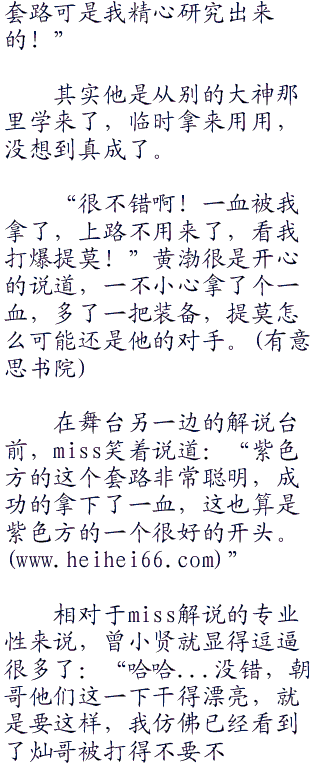 套路可是我精心研究出来
的！”
其实他是从别的大神那
里学来了，临时拿来用用，
没想到真成了。
“很不错啊！一血被我
拿了，上路不用来了，看我
打爆提莫！”黄渤很是开心
的说道，一不小心拿了个一
血，多了一把装备，提莫怎
么可能还是他的对手。(有意
思书院)
在舞台另一边的解说台
前，miss笑着说道：“紫色
方的这个套路非常聪明，成
功的拿下了一血，这也算是
紫色方的一个很好的开头。
(www.heihei66.com)”
相对于miss解说的专业
性来说，曾小贤就显得逗逼
很多了：“哈哈...没错，朝
哥他们这一下干得漂亮，就
是要这样，我仿佛已经看到
了灿哥被打得不要不